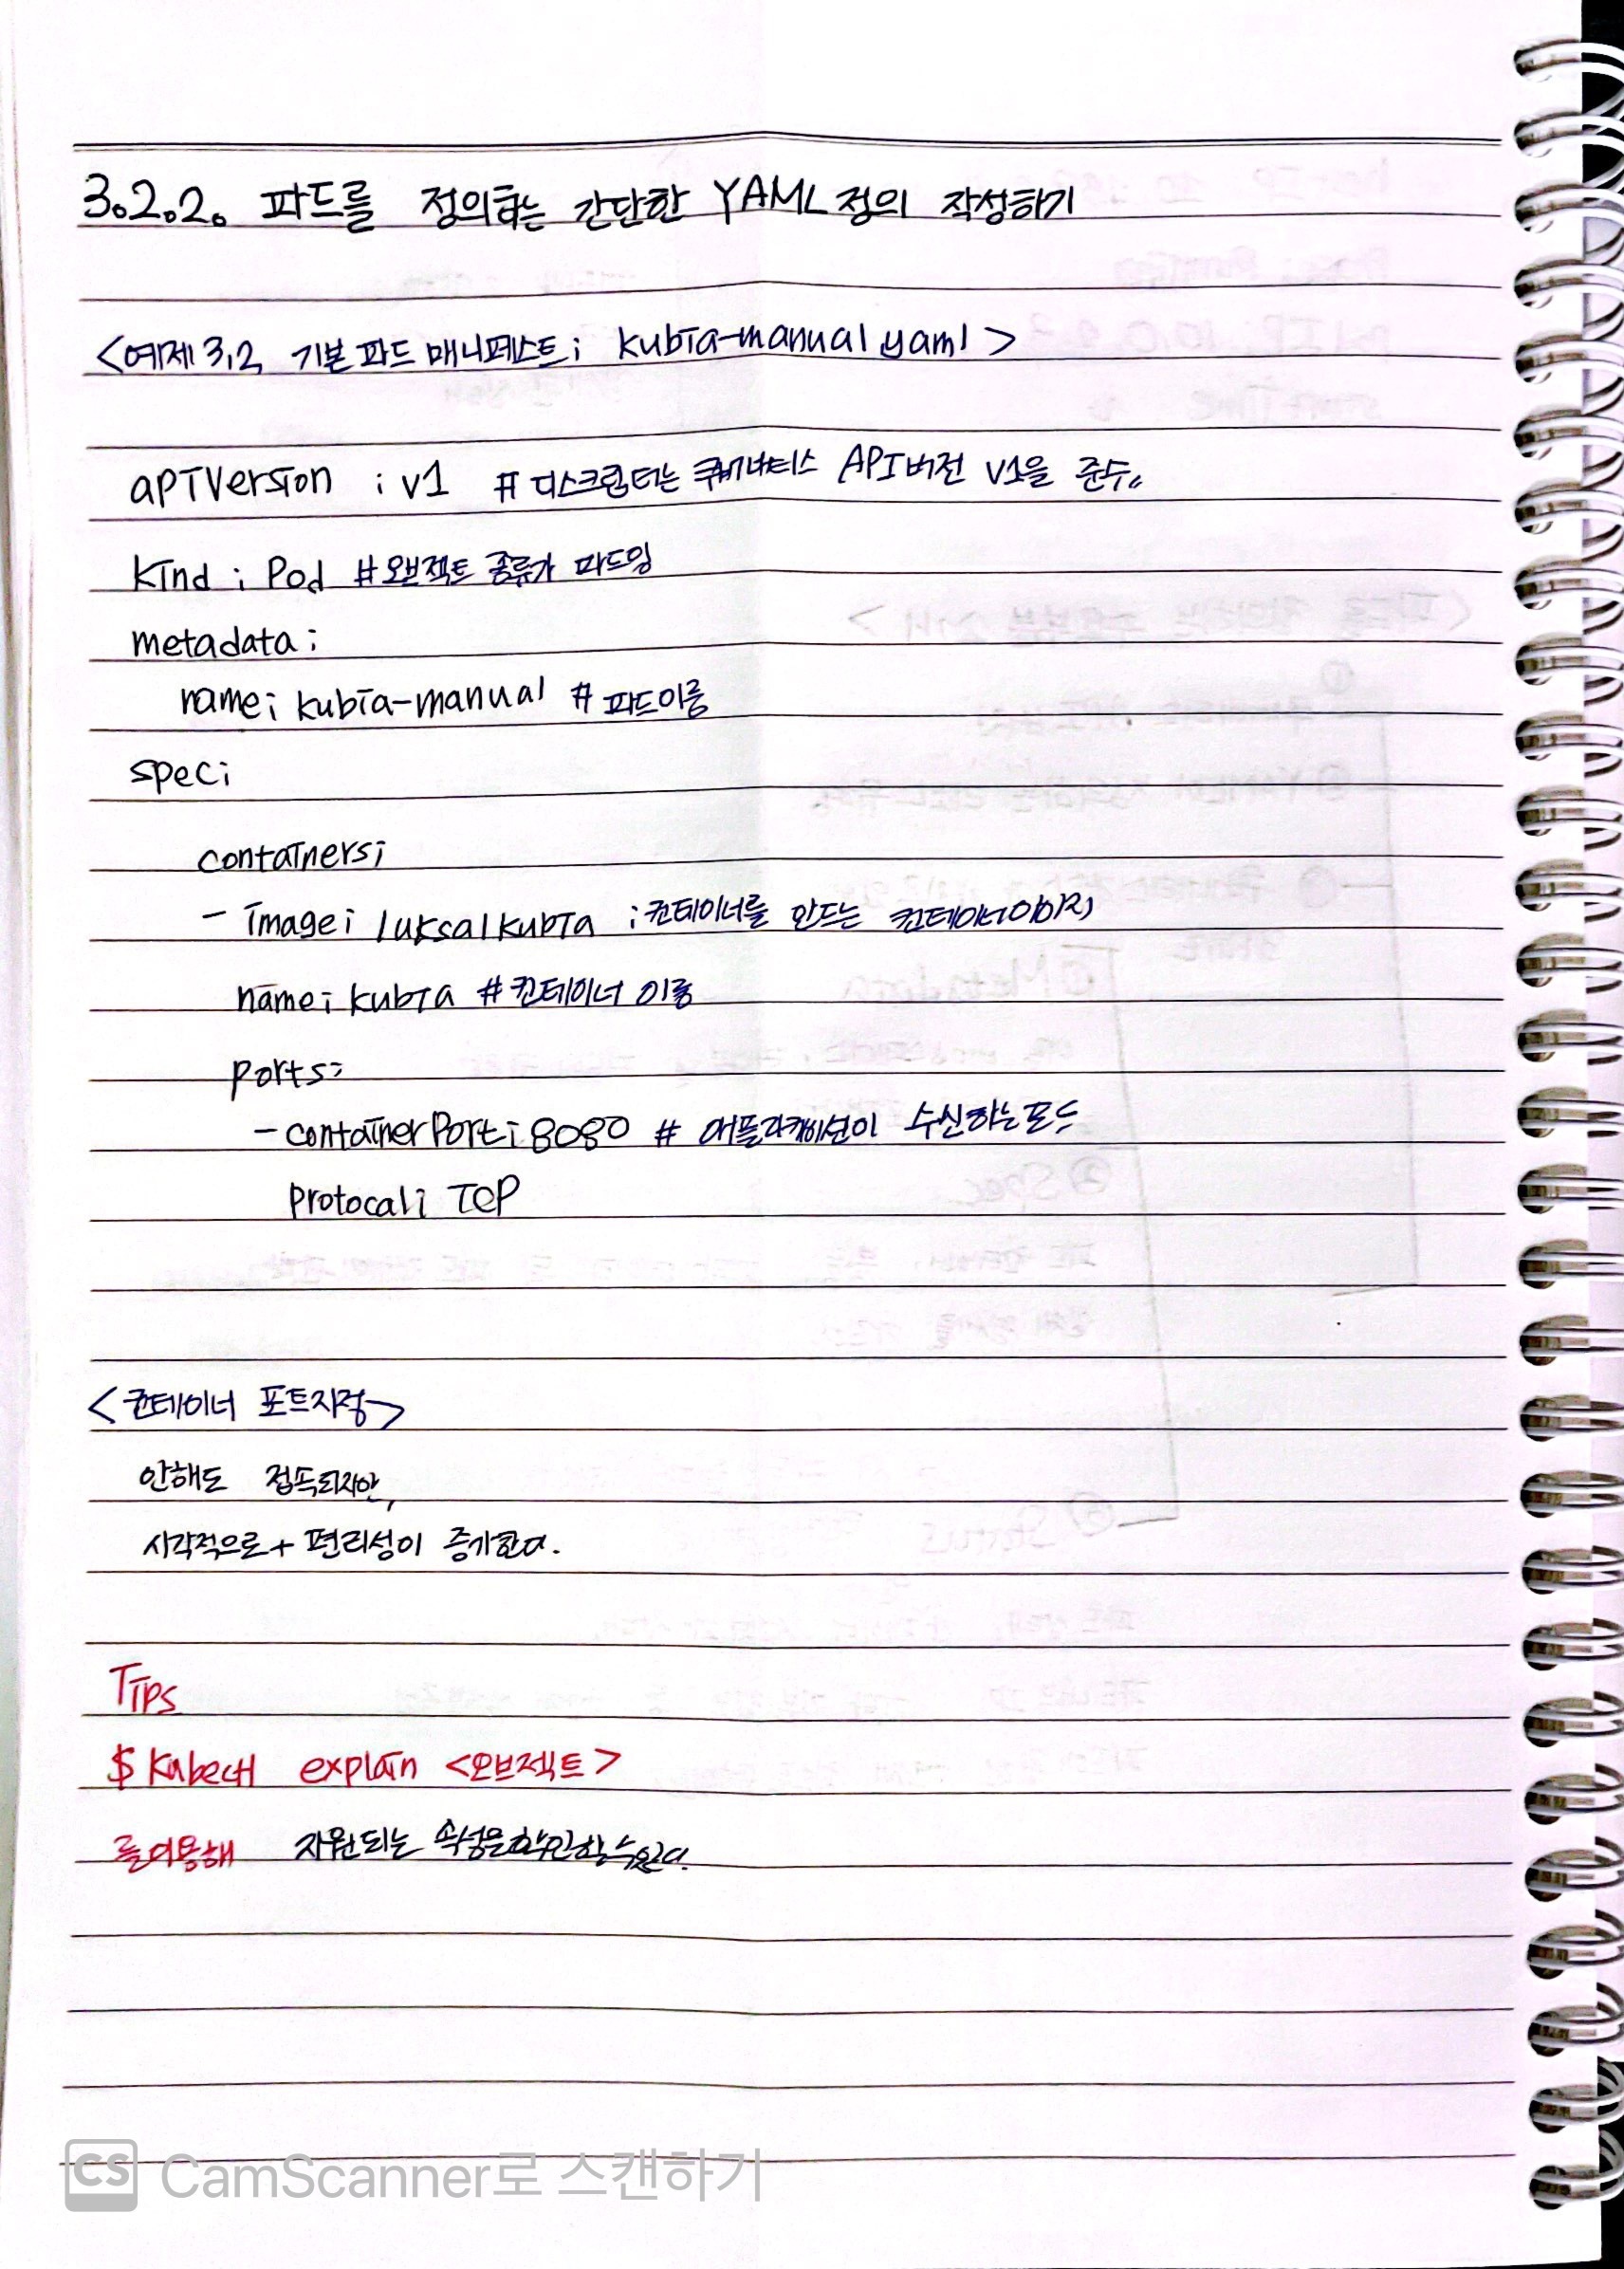 3.2.2. 파드를 정의하는 간단한 YAML 정의 작성하기
<예제 3.2 기본 파드 매니페스트: kubia-manual yaml>
apiVersion : v1 # 디스크립터는 쿠버네티스 API 버전 v1을 준수.
kind : Pod # 오브젝트 종류가 파드임
metadata :
name: kubia-manual # 파드이름
spec:
containers:
- image: luksa/kubia : 컨테이너를 만드는 컨테이너이미지
name: kubia # 컨테이너 이름
ports:
- containerPort: 8080 # 어플리케이션이 수신하는 포트
protocal: TCP
<컨테이너 포트지정>
안해도 접속되지만,
시각적으로 + 편리성이 증가한다.
Tips
$ Kubectl explain <오브젝트>
를 이용해 지원되는 속성을 확인할 수 있다.
CS CamScanner로 스캔하기